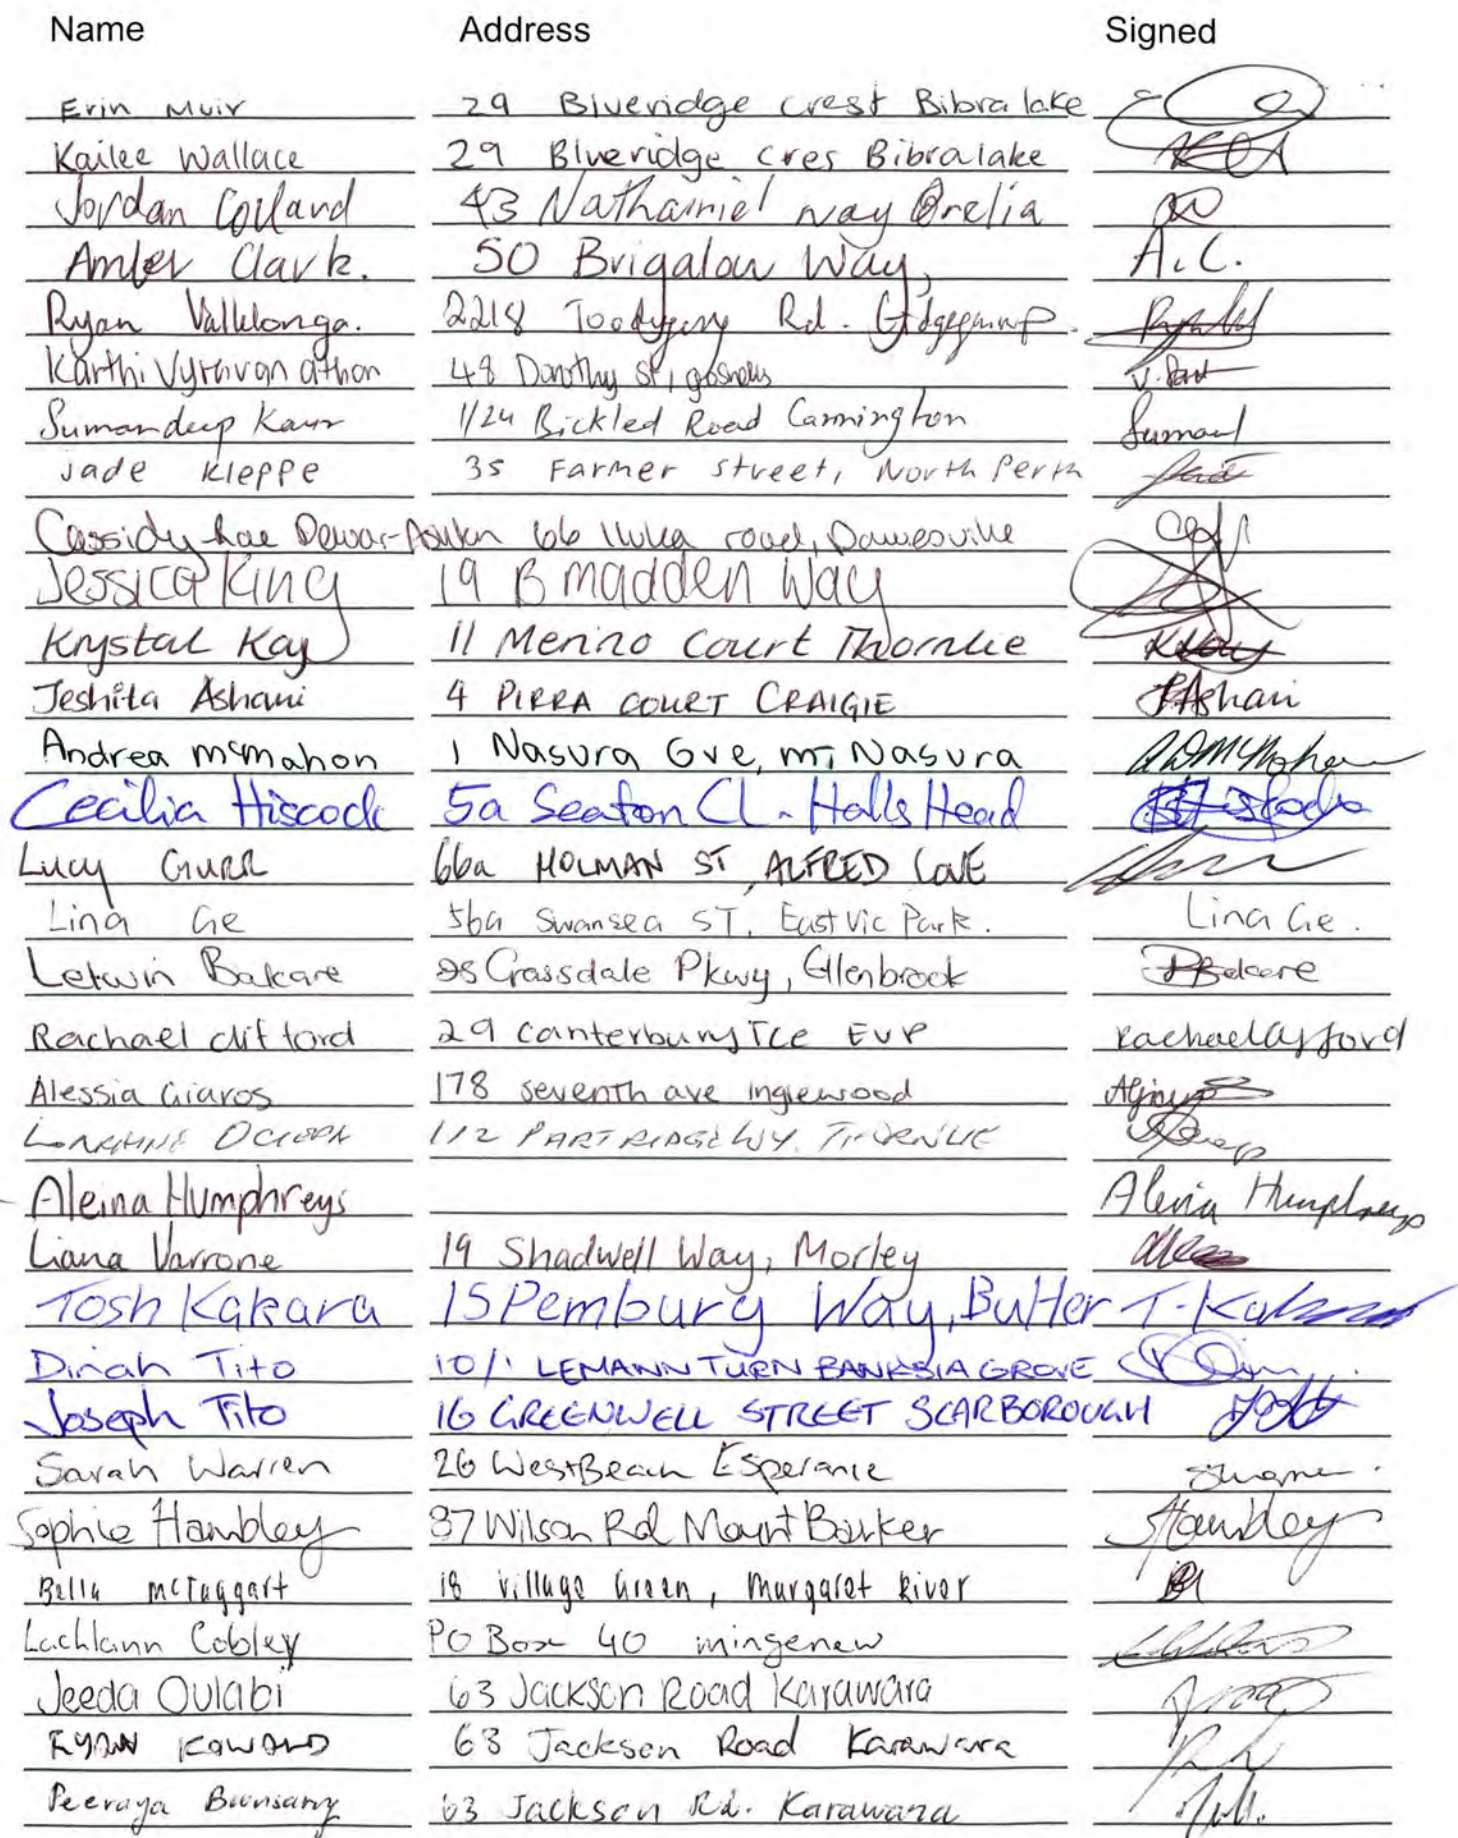 Name Address Signed
Erin Muir 29 Blueridge Crest Bibra lake
Kailee Wallace 29 Blueridge Cres Bibralake
Jordan Collard 43 Nathaniel way Orelia
Amber Clark. 50 Brigalow Way, A.C.
Ryan Vallelonga. 2218 Toodyay Rd. Gidgegannup.
Karthi Vyravan athan 48 Dorothy st, gosnells
Sumandeep Kaur 1/24 Bickled Road Cannington Suman
Jade Kleppe 35 Farmer street, North Perth
Cassidy-Rae Dewar- 66 Iluka road, Dawesville
Jessica King 19 B madden Way
Krystal Kay 11 Merino Court Thornlie KKay
Jeshita Ashani 4 PIRRA COURT CRAIGIE JAshani
Andrea mcmahon 1 Nasura Gve, mt Nasura ADMcMahon
Cecilia Hiscock 5a Seaton Cl - Halls Head
Lucy GURR 66a HOLMAN ST, ALFRED COVE
Lina Ge 56a Swansea ST, East Vic Park. Lina Ge.
Letwin Bakare Grassdale Pkwy, Ellenbrook Bakare
Rachael clifford 29 canterbury Tce EVP Rachael Clifford
Alessia Giaros 178 seventh ave inglewood
112 PARTRIDGE WY. THORNLIE
Aleina Humphreys Aleina Humphreys
Liana Varrone 19 Shadwell Way, Morley
Tosh Kakara 15 Pembury Way, Butler T-Kakara
Dinah Tito 10/1 LEMANN TURN BANKSIA GROVE
Joseph Tito 16 GREENWELL STREET SCARBOROUGH
Sarah Warren 26 WestBeach Esperance
Sophie Hambley 37 Wilson Rd Mount Barker SHambley
Bella McTaggart 18 village Green, Margaret River
Lachlann Cobley PO Box 40 mingenew
Jeeda Oulabi 63 Jackson Road Karawara
RYAN KOWALD 63 Jackson Road Karawara
Peeraya 63 Jackson Rd. Karawara